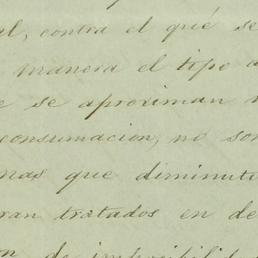 al, contra el qué se
manera el tipo
e se aproximan
consumacion, no son
nas que diminut
ran tratados en de
de imposibilid